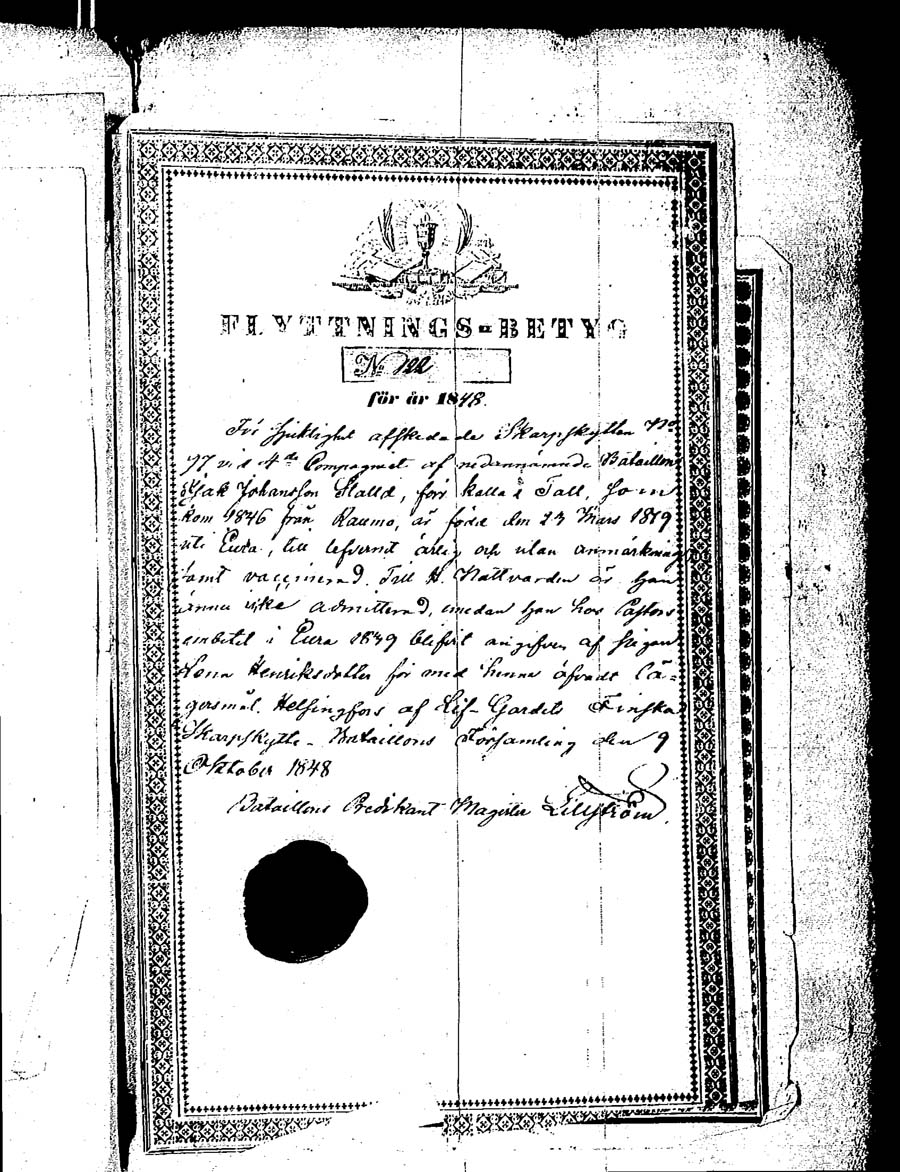 FLYTTNINGS-BETYG
No 122
för år 1848.
För sjuklighet afskedade Skarpskytten No
97 vid 4de Compagniet af nedannämnde Bataillon
Isak Johansson Stalld, förr kallad Tall, som
kom 1846 från Raumo, är född den 23 Mars 1819
uti Eura, till lefvernet ärlig och utan anmärkning
samt vaccinerad. Till H. Nattvarden är han
ännu icke admitterad, emedan han hos Pastors
embetet i Eura 1839 blifvit angifven af pigan
Lena Henriksdotter för med henne öfvadt Lä-
gersmål. Helsingfors af Lif-Gardets Finska
Skarpskytte-Bataillons Församling den 9
Oktober 1848
Bataillons Predikant Magister Lillström.